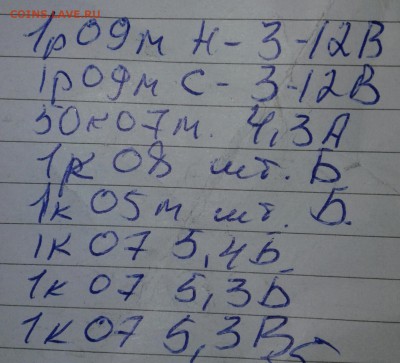 COINS.LAVE.RU
1р09м Н-3-12В
1р09м С-3-12В
50к07м. 4,3А
1р 08 шт. Б
1к 05м шт. Б.
1к 07 5,4Б
1к 07 5,3Б
1к 07 5,3В